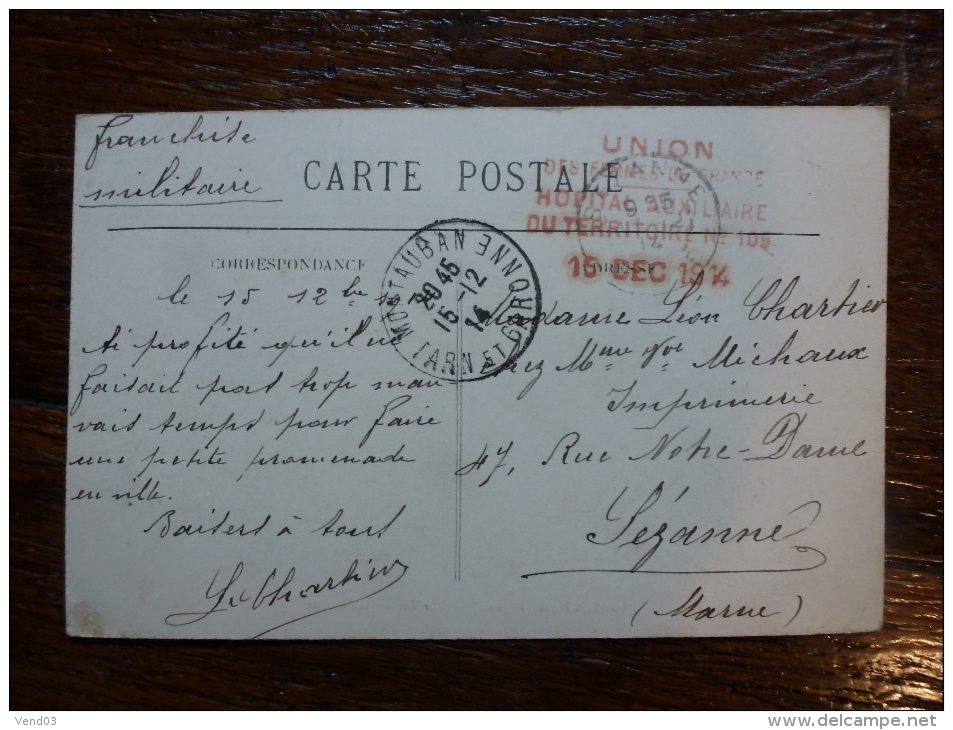 franchise
militaire
CARTE POSTALE
UNION
DES FEMMES DE FRANCE
HOPITAL AUXILIAIRE
DU TERRITOIRE No 105
15 DEC 1914
SEZANNE
9 35
14
MONTAUBAN
20 45
15-12
14
TARN ET GARONNE
CORRESPONDANCE
ADRESSE
le 15 12bre
Ai profité qu'il ne
faisait pas trop mau
vais temps pour faire
une petite promenade
en ville.
Baisers à tous
L. Chartier
Madame Léon Chartier
chez Mme Vve Michaux
Imprimerie
47, Rue Notre-Dame
Sézanne
(Marne)
Vend03
www.delcampe.net